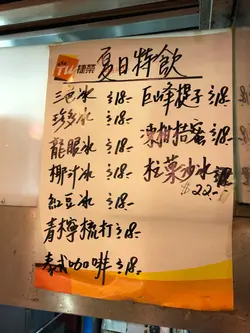 捷榮
夏日特飲
三色冰 $18-
珍多冰 $18-
龍眼冰 $18-
椰汁冰 $18-
紅豆冰 $18-
青檸梳打 $18-
泰式咖啡 $18-
巨峰提子 $18-
凍柑桔蜜 $18-
拉菓沙冰
$22-